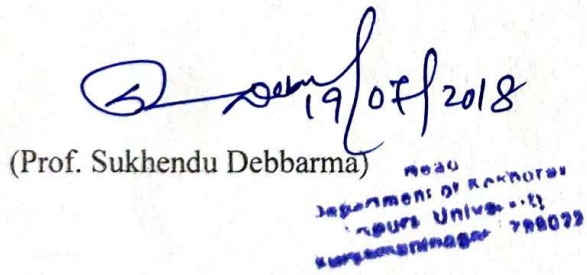 19/07/2018
(Prof. Sukhendu Debbarma)
Head
Department of Kokborok
Tripura University
Suryamaninagar 799022